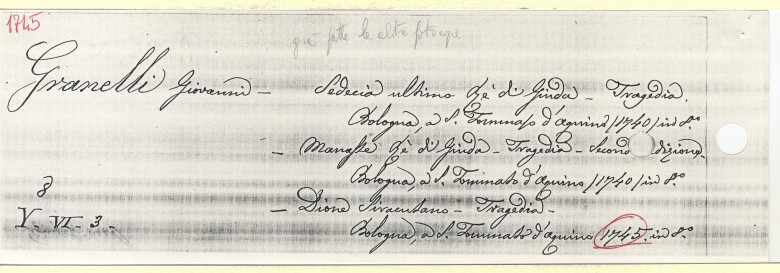 1745
già fatte le altre fotocopie
Granelli Giovanni – Sedecia ultimo Rè di Giuda – Tragedia.
Bologna, a S. Tommaso d'Aquino (1740) in 8.º
– Manasse Rè di Giuda – Tragedia – Second dizione.
Bologna, a S. Tommaso d'Aquino (1740) in 8.º
8
– Dione Siracusano – Tragedia –
V. VI. 3.
Bologna, a S. Tommaso d'Aquino 1745. in 8.º